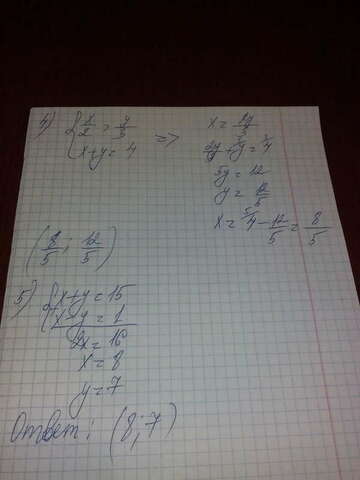 4) { x/2 = y/3
x+y=4 =>
x = 2y/3
2y/3 + y = 4
5y = 12
y = 12/5
x = 4 - 12/5 = 8/5
(8/5; 12/5)
5) { x+y=15
x-y=1
2x=16
x=8
y=7
Ответ: (8;7)